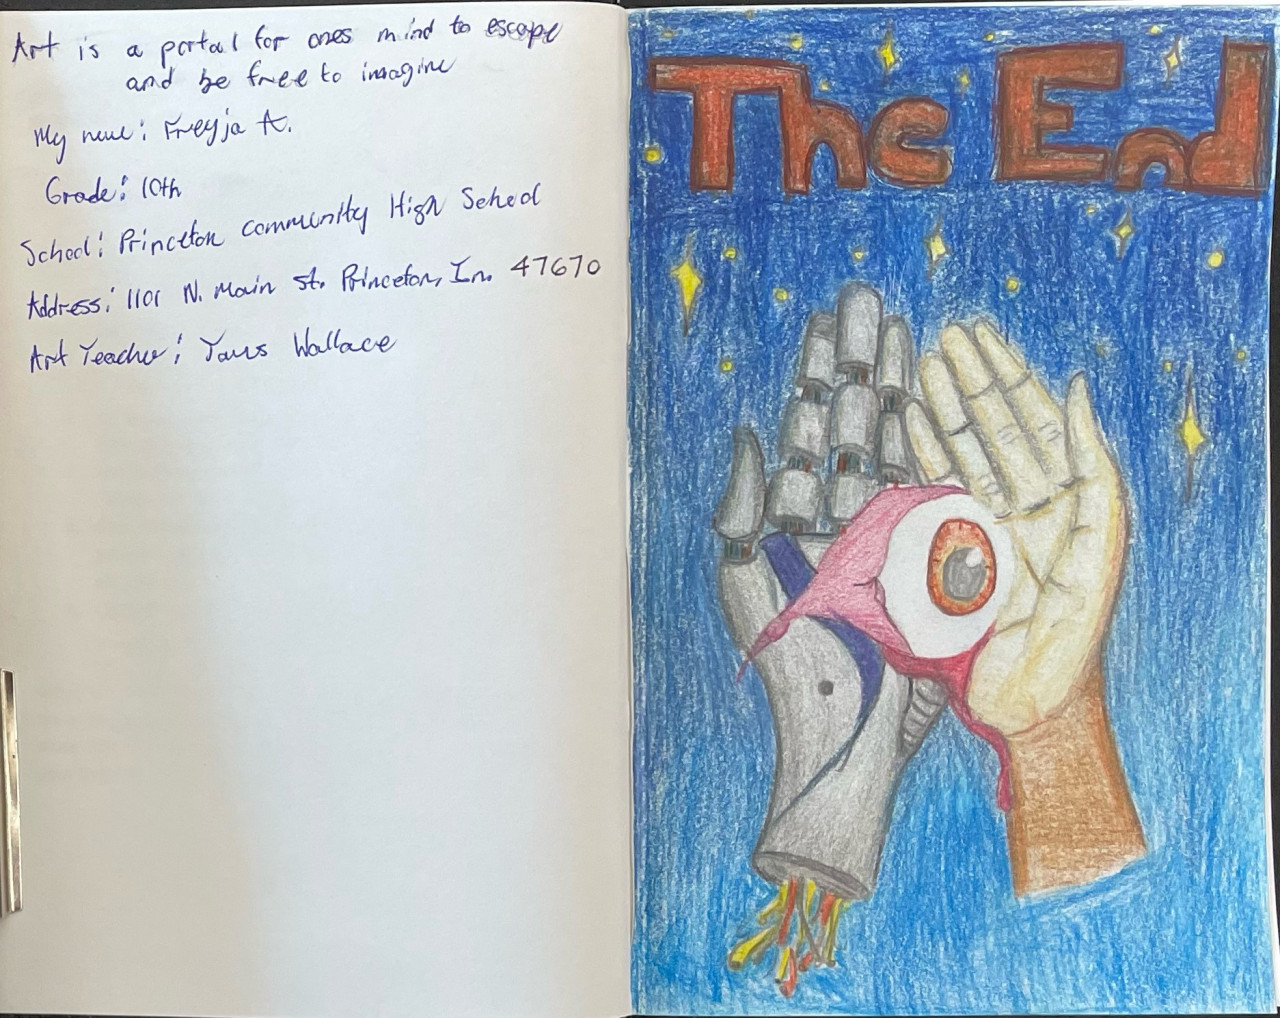 Art is a portal for ones mind to escape
and be free to imagine
My name: Freyja A.
Grade: 10th
School: Princeton Community High School
Address: 1101 N. Main st. Princeton, In. 47670
Art Teacher: Wallace
The End